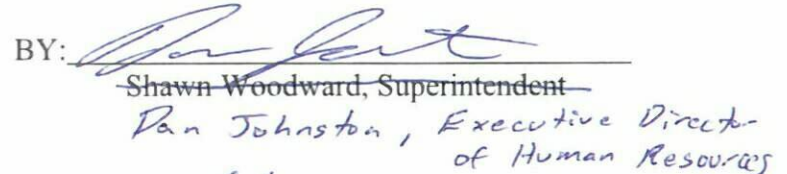 BY:
Shawn Woodward, Superintendent
Dan Johnston, Executive Director
of Human Resources